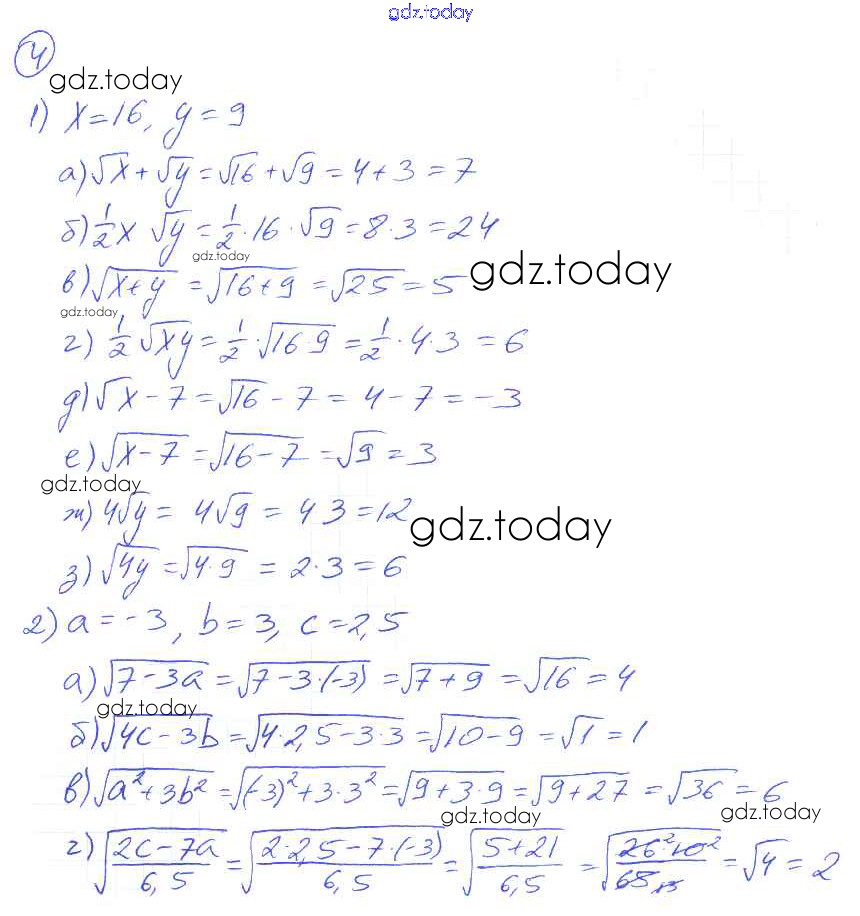 gdz.today
4
gdz.today
1) x=16, y=9
а) √x + √y = √16 + √9 = 4+3 = 7
б) 1/2 x √y = 1/2 · 16 · √9 = 8·3 = 24
gdz.today
в) √(x+y) = √(16+9) = √25 = 5
gdz.today
gdz.today
г) 1/2 √(xy) = 1/2 · √(16·9) = 1/2 · 4·3 = 6
д) √x - 7 = √16 - 7 = 4 - 7 = -3
е) √(x-7) = √(16-7) = √9 = 3
gdz.today
ж) 4√y = 4√9 = 4 3 = 12
gdz.today
з) √(4y) = √(4·9) = 2·3 = 6
2) a = -3, b = 3, c = 2,5
а) √(7-3a) = √(7-3·(-3)) = √(7+9) = √16 = 4
gdz.today
б) √(4c-3b) = √(4·2,5-3·3) = √(10-9) = √1 = 1
в) √(a²+3b²) = √((-3)²+3·3²) = √(9+3·9) = √(9+27) = √36 = 6
gdz.today
gdz.today
г) √((2c-7a)/6,5) = √((2·2,5-7·(-3))/6,5) = √((5+21)/6,5) = √4 = 2